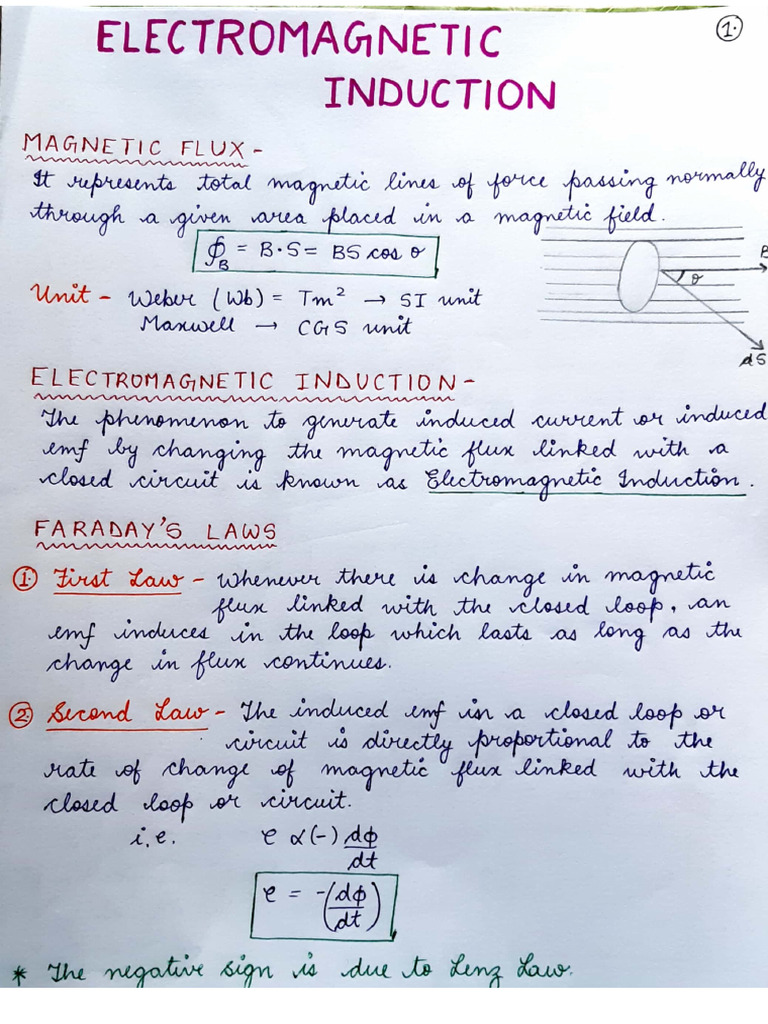 ELECTROMAGNETIC
1.
INDUCTION
MAGNETIC FLUX -
It represents total magnetic lines of force passing normally
through a given area placed in a magnetic field.
ϕ_B = B·S = BS cos θ
B
θ
dS
Unit - Weber (Wb) = Tm² → SI unit
Maxwell → CGS unit
ELECTROMAGNETIC INDUCTION -
The phenomenon to generate induced current or induced
emf by changing the magnetic flux linked with a
closed circuit is known as Electromagnetic Induction.
FARADAY'S LAWS
1. First Law - Whenever there is change in magnetic
flux linked with the closed loop, an
emf induces in the loop which lasts as long as the
change in flux continues.
2. Second Law - The induced emf in a closed loop or
circuit is directly proportional to the
rate of change of magnetic flux linked with the
closed loop or circuit.
i.e. e α (-) dϕ/dt
e = -(dϕ/dt)
* The negative sign is due to Lenz Law.